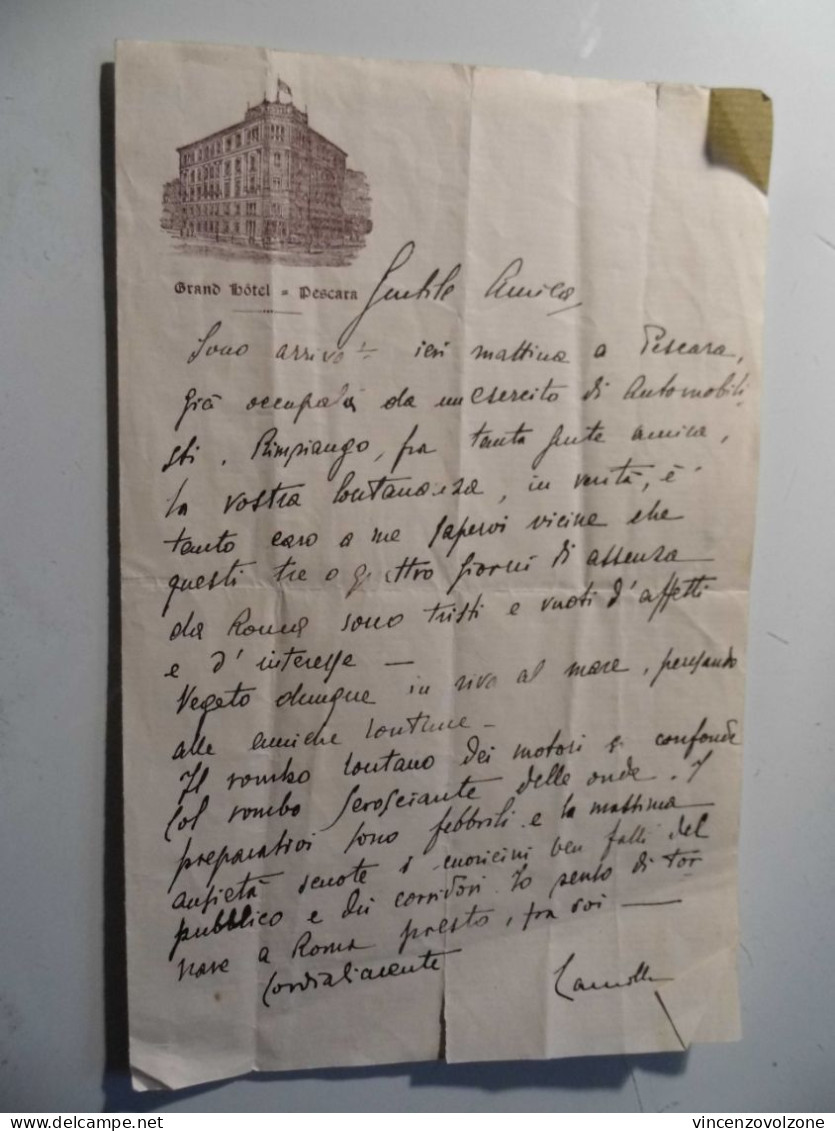 Grand Hôtel = Pescara
Gentile Amica,
Sono arrivato ieri mattina a Pescara,
già occupata da un esercito di Automobili
sti. Rimpiango, fra tanta gente amica,
la vostra lontananza, in verità, è
tanto caro a me sapervi vicine che
questi tre o quattro giorni di assenza
da Roma sono tristi e vuoti d'affetti
e d'interesse —
Vegeto dunque in riva al mare, pensando
alle amiche lontane –
Il rombo lontano dei motori si confonde
col rombo scrosciante delle onde. I
preparativi sono febbrili e la massima
ansietà scuote i cuoricini ben fatti del
pubblico e dei corridori. Io sento di tor
nare a Roma presto, fra voi —
Cordialmente
vincenzovolzone